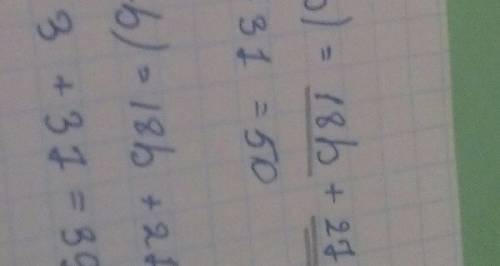 b) = 18b + 27
37 = 50
b) = 18b + 27
3 + 37 = 39